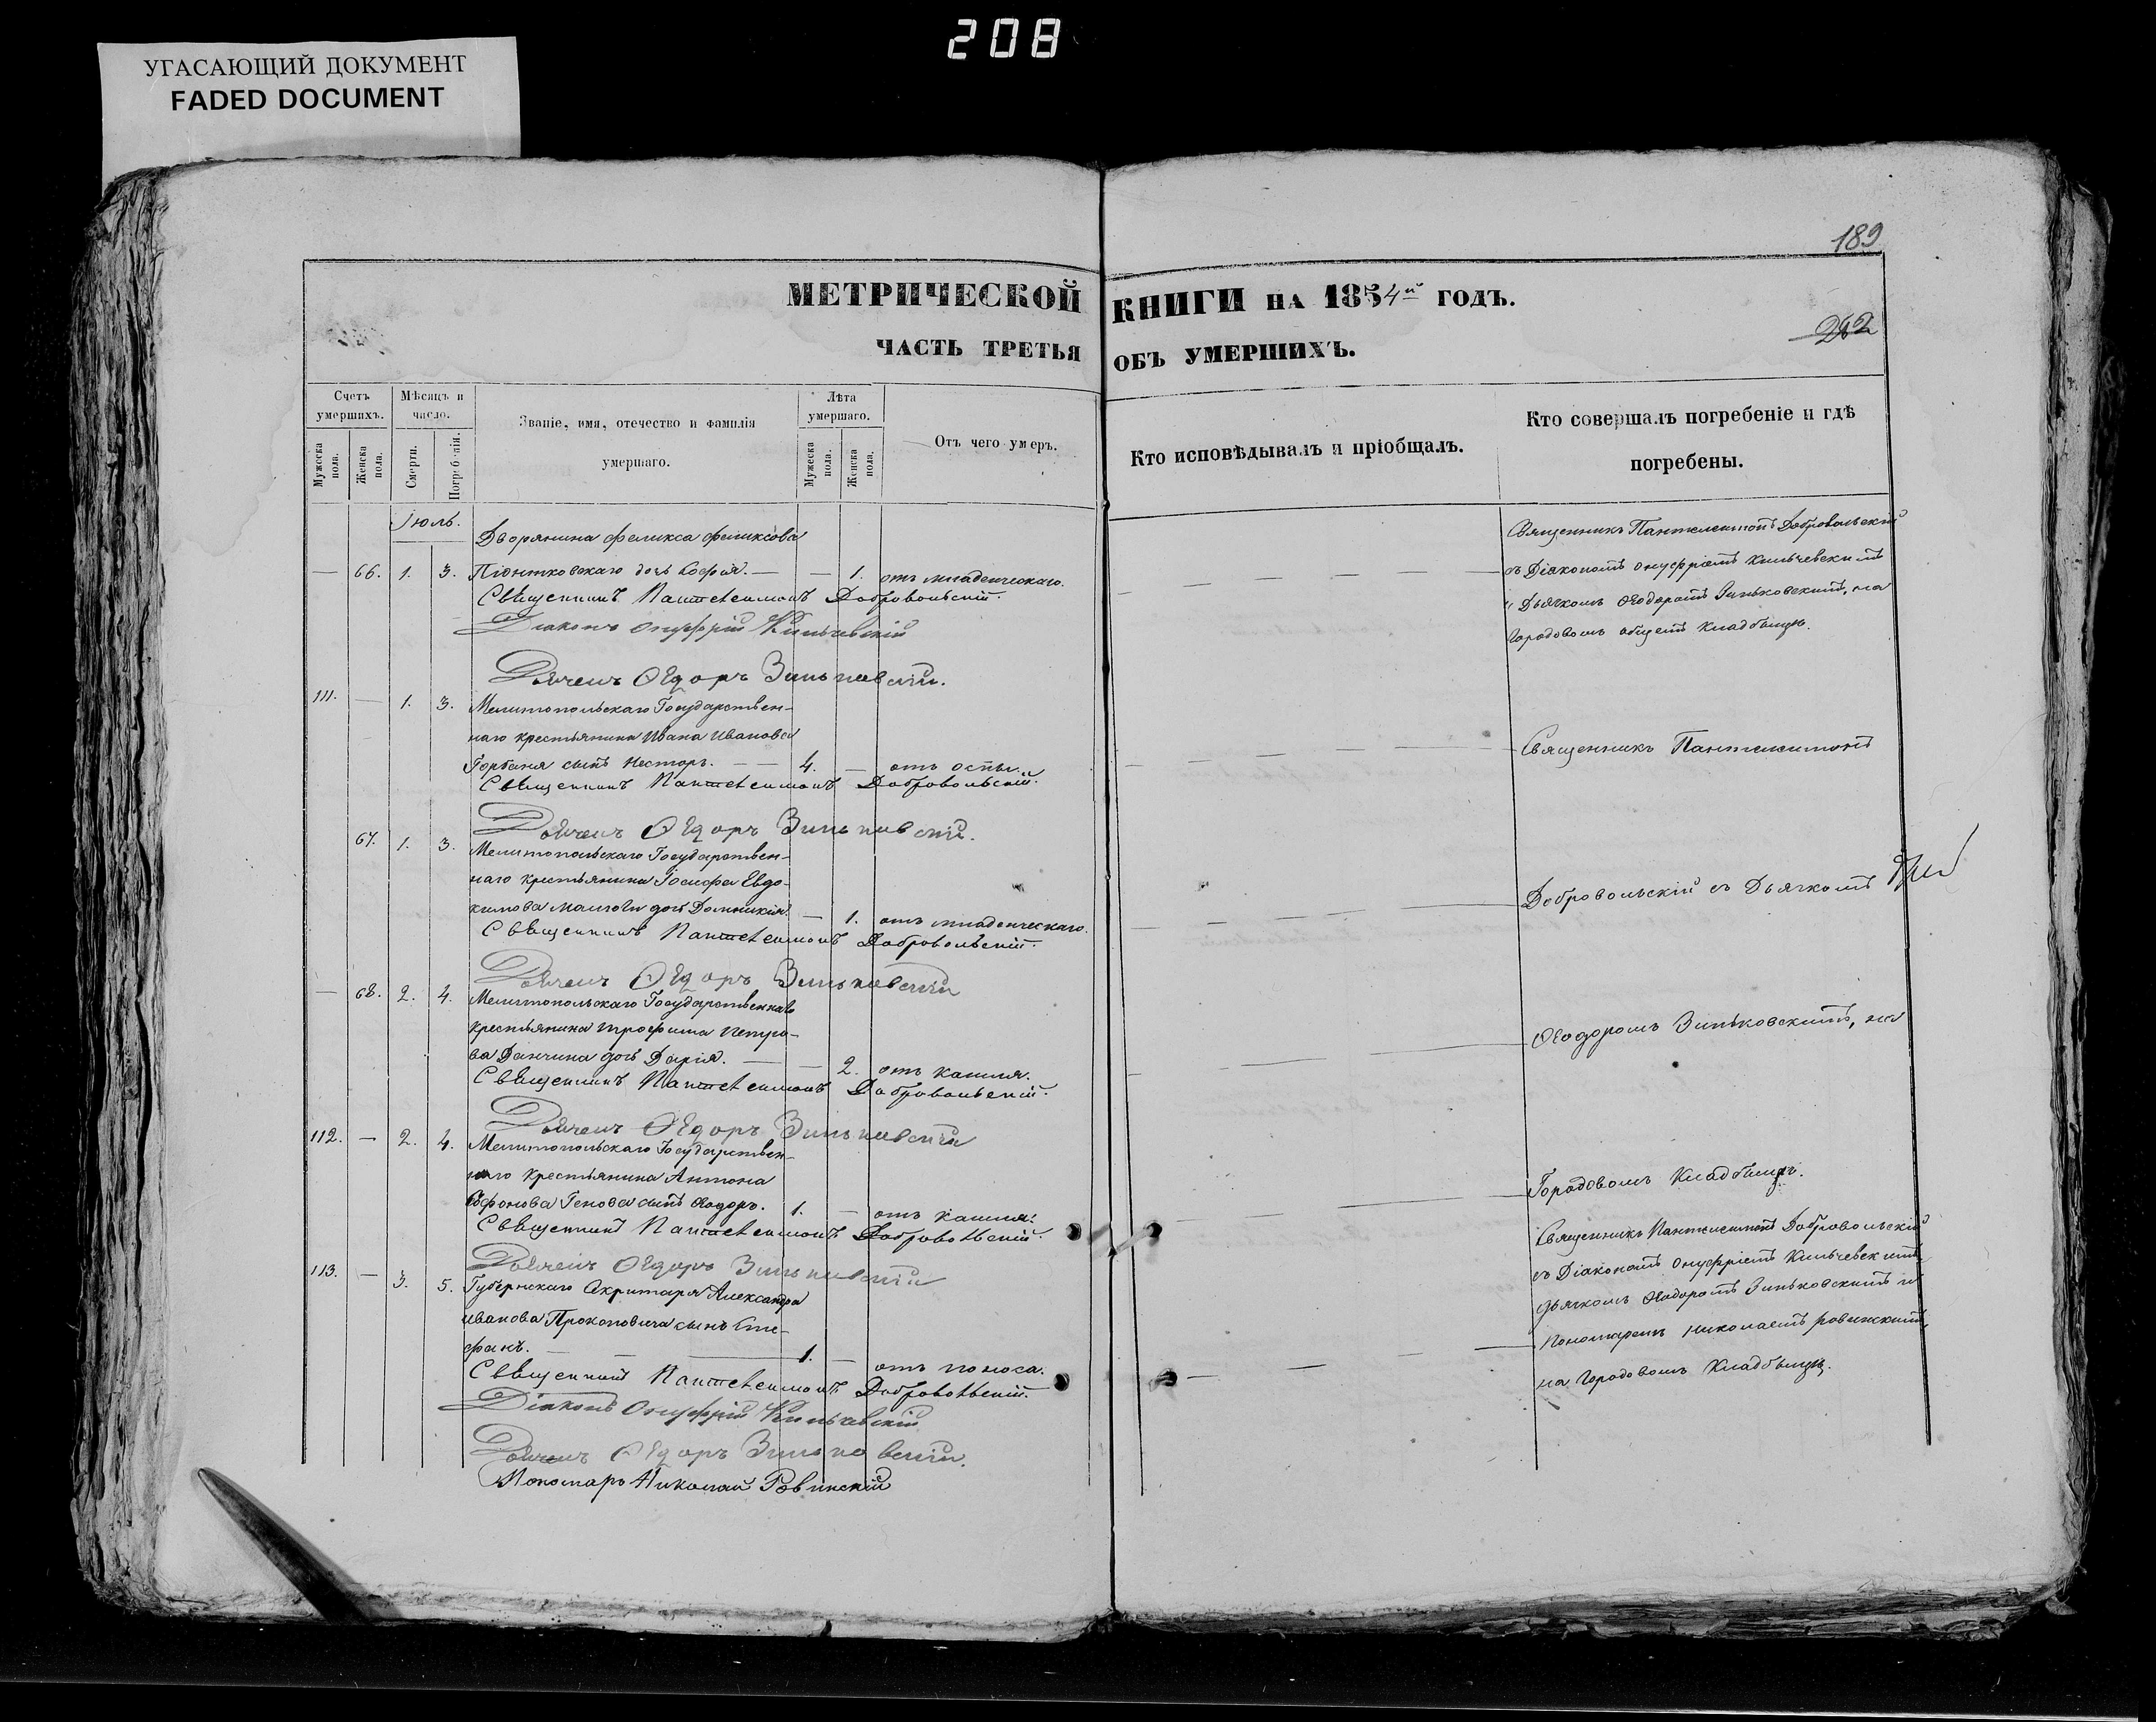 208
УГАСАЮЩИЙ ДОКУМЕНТ
FADED DOCUMENT
189
МЕТРИЧЕСКОЙ КНИГИ НА 1854й ГОДЪ.
262
ЧАСТЬ ТРЕТЬЯ ОБЪ УМЕРШИХЪ.
Счетъ умершихъ.
Мужеска пола.
Женска пола.
Мѣсяцъ и число.
Смерти.
Погребенія.
Званіе, имя, отечество и фамилія умершаго.
Лѣта умершаго.
Мужеска пола.
Женска пола.
Отъ чего умеръ.
Кто исповѣдывалъ и пріобщалъ.
Кто совершалъ погребеніе и гдѣ погребены.
Іюль.
Дворянина Феликса Феликсова
— 66. 1. 3. Піонтковскаго дочь Софія. — — 1. отъ младенческаго.
Священникъ Пантелеимонъ Добровольскій.
Діаконъ Онуфрій Кильчевскій
Дьячекъ Ѳедоръ Зиньковскій.
111. — 1. 3. Мелитопольскаго Государствен-
наго крестьянина Ивана Иванова
Горбаня сынъ Несторъ. — — 4. — отъ оспы.
Священникъ Пантелеимонъ Добровольскій.
Дьячекъ Ѳедоръ Зиньковскій.
67. 1. 3. Мелитопольскаго Государствен-
наго крестьянина Іосифа Евдо-
кимова дочь Домникія. — 1. отъ младенческаго.
Священникъ Пантелеимонъ Добровольскій.
Дьячекъ Ѳедоръ Зиньковскій
— 68. 2. 4. Мелитопольскаго Государственнаго
крестьянина Трофима Петро-
ва Данчина дочь Дарія. — — 2. отъ кашля.
Священникъ Пантелеимонъ Добровольскій.
Дьячекъ Ѳедоръ Зиньковскій
112. — 2. 4. Мелитопольскаго Государствен-
наго крестьянина Антона
Софонова сынъ Ѳеодоръ. 1. — отъ кашля.
Священникъ Пантелеимонъ Добровольскій.
Дьячекъ Ѳедоръ Зиньковскій
113. — 3. 5. Губернскаго Секритаря Александра
Иванова Прокоповича сынъ Сте-
фанъ. — — 1. — отъ поноса.
Священникъ Пантелеимонъ Добровольскій.
Діаконъ Онуфрій Кильчевскій
Дьячекъ Ѳедоръ Зиньковскій.
Пономарь Николай Ровинскій
Священникъ Пантелеимонъ Добровольскій
съ Діакономъ Онуфріемъ Кильчевскимъ
и Дьячкомъ Ѳеодоромъ Зиньковскимъ, на
Городовомъ общемъ Кладбищѣ.
Священникъ Пантелеимонъ
Добровольскій съ Дьячкомъ
Ѳеодоромъ Зиньковскимъ, на
Городовомъ Кладбищѣ.
Священникъ Пантелеимонъ Добровольскій
съ Діакономъ Онуфріемъ Кильчевскимъ
дьячкомъ Ѳеодоромъ Зиньковскимъ и
Пономаремъ Николаемъ Ровинскимъ,
на Городовомъ Кладбищѣ.